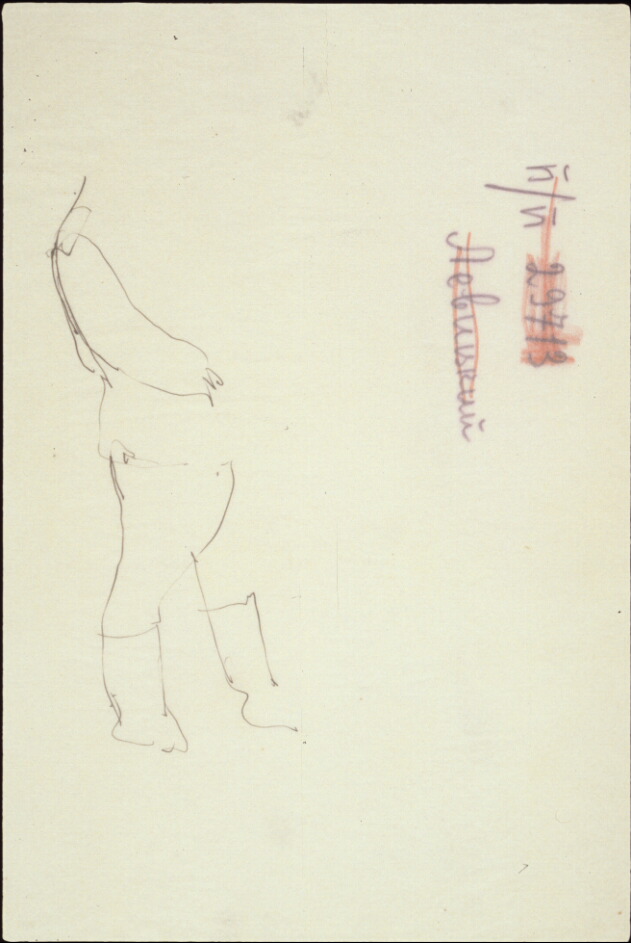 п/п 29713
Левицкий